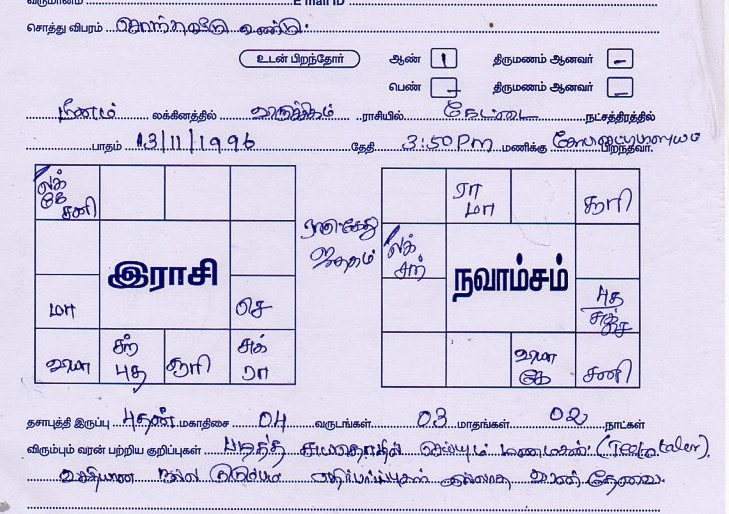 வருமானம் E mail ID
சொத்து விபரம் சொந்தவீடு உண்டு.
உடன் பிறந்தோர் ஆண் 1 திருமணம் ஆனவர் –
பெண் – திருமணம் ஆனவர் –
மீனம் லக்கினத்தில் விருச்சிகம் ராசியில் கேட்டை நட்சத்திரத்தில்
பாதம் 13/11/1996 தேதி 3:50 Pm மணிக்கு கோபிசெட்டிபாளையம் பிறந்தவர்.
லக் கே சனி
மா
செ
வியா
சந் புத
சூரி
சுக் ரா
இராசி
ராகு கேது ஜாதகம்
ரா மா
சூரி
லக் சந்
புத சுக் செ
வியா கே
சனி
நவாம்சம்
தசாபுத்தி இருப்பு புதன் மகாதிசை 04 வருடங்கள் 03 மாதங்கள் 02 நாட்கள்
விரும்பும் வரன் பற்றிய குறிப்புகள் படித்த சுயதொழில் செய்யும் மணமகன்
வசதியான நல்ல குடும்பம் எதிர்பார்ப்புகள் இல்லாத வரன் தேவை.